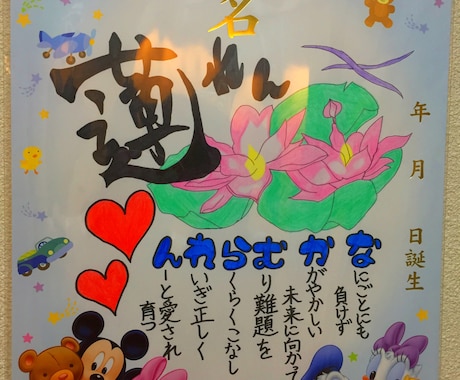 名
蓮
れん
年 月 日誕生
なにごとにも
負けず
かがやかしい
未来に向かって
むり難題を
らくらくこなし
れいぎ正しく
んーと愛され
育つ